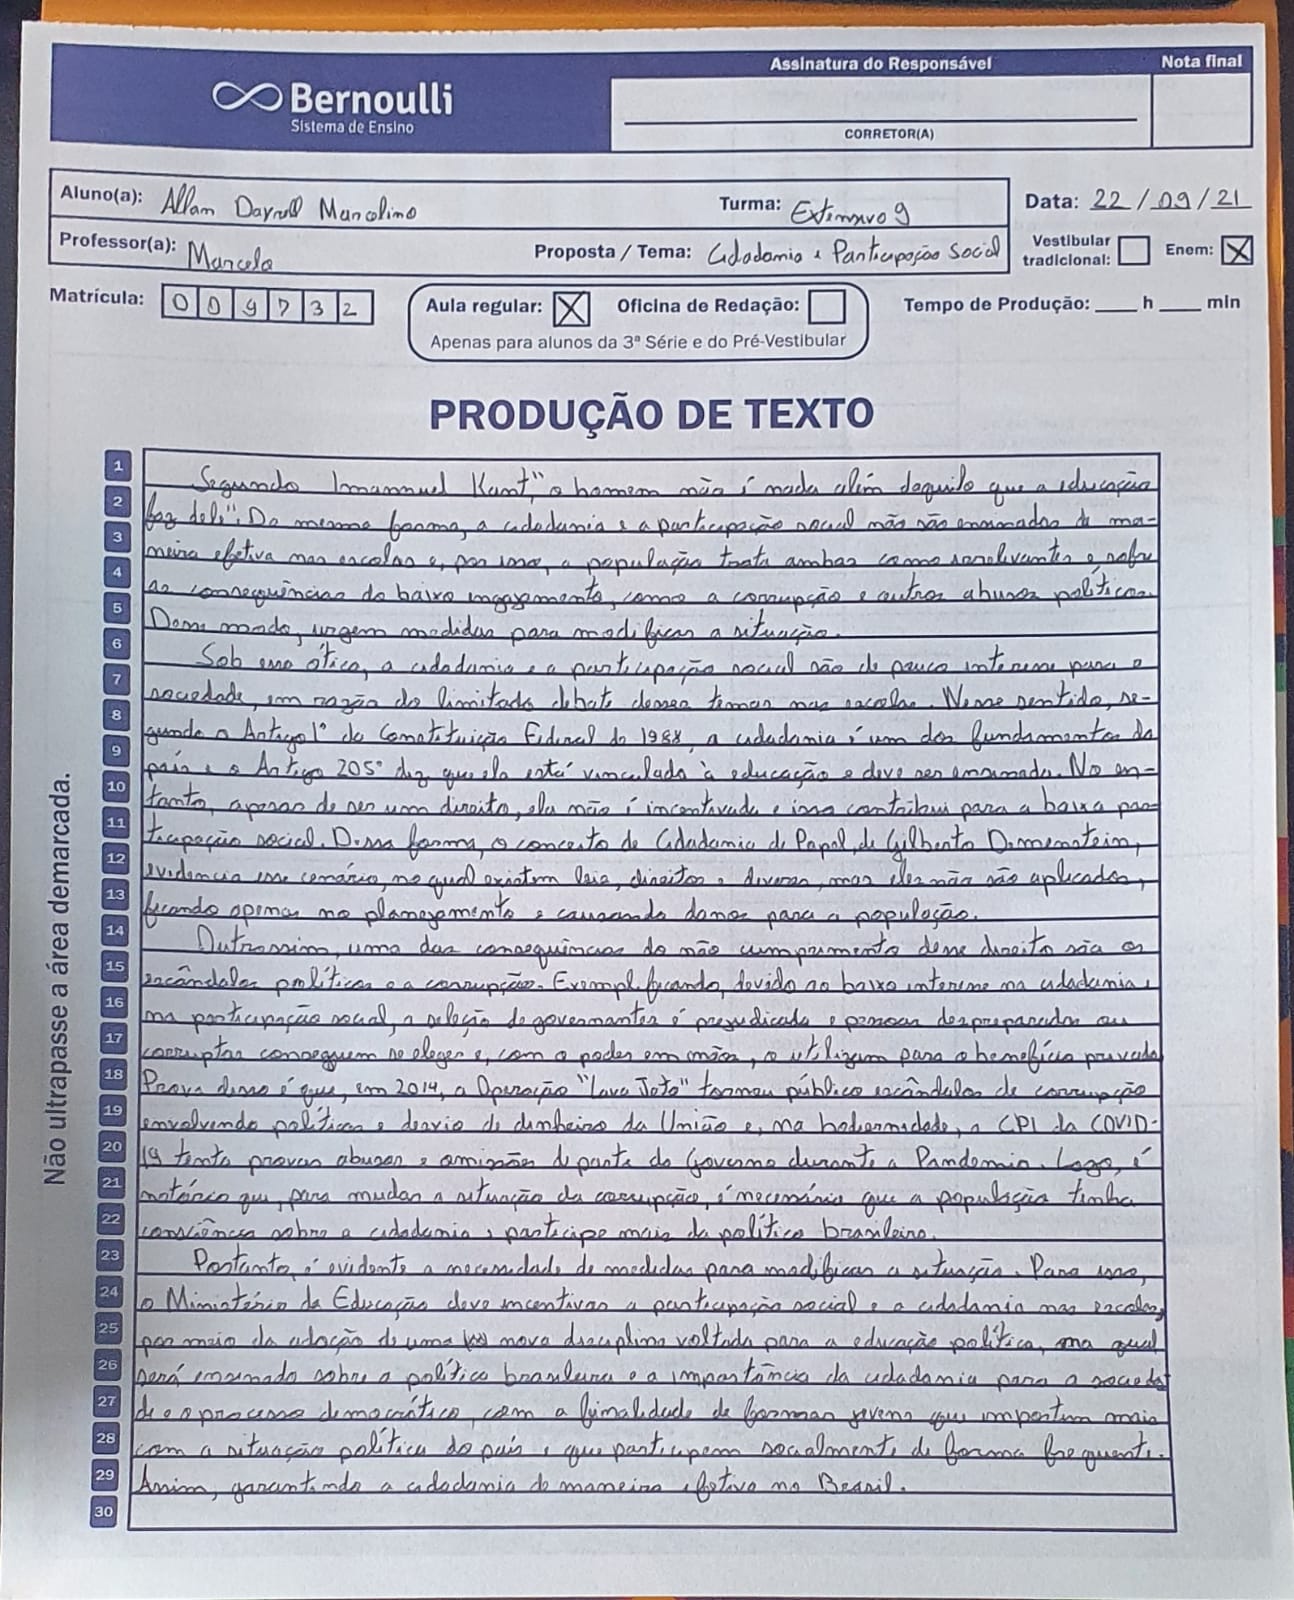 Bernoulli
Sistema de Ensino
Assinatura do Responsável
Nota final
CORRETOR(A)
Aluno(a): Allan Dayrell Marcolino
Turma: Extensivo 9
Data: 22/09/21
Professor(a): Marcela
Proposta / Tema: Cidadania e Participação Social
Vestibular tradicional:
Enem: X
Matrícula: 009732
Aula regular: X
Oficina de Redação:
Apenas para alunos da 3ª Série e do Pré-Vestibular
Tempo de Produção: ____ h ____ min
PRODUÇÃO DE TEXTO
Não ultrapasse a área demarcada.
1 Segundo Imannuel Kant, "o homem não é nada além daquilo que a educação
2 faz dele". Da mesma forma, a cidadania e a participação social não são ensinadas de ma-
3 neira efetiva nas escolas e, por isso, a população trata ambas como irrelevantes e sofre
4 as consequências do baixo engajamento, como a corrupção e outros abusos políticos.
5 Desse modo, urgem medidas para modificar a situação.
6 Sob essa ótica, a cidadania e a participação social são de pouco interesse para a
7 sociedade, em razão do limitado debate desses temas nas escolas. Nesse sentido, se-
8 gundo o Artigo 1° da Constituição Federal de 1988, a cidadania é um dos fundamentos do
9 país e o Artigo 205° diz que ela está vinculada à educação e deve ser ensinada. No en-
10 tanto, apesar de ser um direito, ela não é incentivada e isso contribui para a baixa par-
11 ticipação social. Dessa forma, o conceito de Cidadania de Papel, de Gilberto Dimenstein,
12 evidencia esse cenário, no qual existem leis, direitos e deveres, mas eles não são aplicados,
13 ficando apenas no planejamento e causando danos para a população.
14 Outrossim, uma das consequências do não cumprimento desse direito são os
15 escândalos políticos e a corrupção. Exemplificando, devido ao baixo interesse na cidadania e
16 na participação social, a seleção de governantes é prejudicada e pessoas despreparadas ou
17 corruptas conseguem se eleger e, com o poder em mãos, o utilizam para o benefício privado.
18 Prova disso é que, em 2014, a Operação "Lava Jato" tornou público escândalos de corrupção
19 envolvendo políticos e desvio de dinheiro da União e, na hodiernidade, a CPI da COVID-
20 19 tenta provar abusos e omissões de parte do Governo durante a Pandemia. Logo, é
21 notório que, para mudar a situação da corrupção, é necessário que a população tenha
22 consciência sobre a cidadania e participe mais da política brasileira.
23 Portanto, é evidente a necessidade de medidas para modificar a situação. Para isso,
24 o Ministério da Educação deve incentivar a participação social e a cidadania nas escolas,
25 por meio da adoção de uma nova disciplina voltada para a educação política, na qual
26 será ensinado sobre a política brasileira e a importância da cidadania para a socieda
27 de e o processo democrático, com a finalidade de formar jovens que importem mais
28 com a situação política do país e que participem socialmente de forma frequente.
29 Assim, garantindo a cidadania de maneira efetiva no Brasil.
30